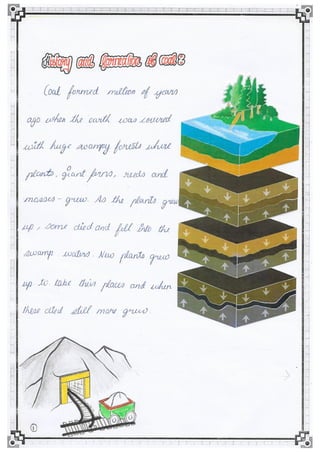 History and formation of coal :
Coal formed million of years
ago when the earth was covered
with huge swampy forests where
plants - giant ferns, reeds and
mosses - grew. As the plants grew
up, some died and fell into the
swamp waters. New plants grew
up to take their places and when
these died still more grew.
1